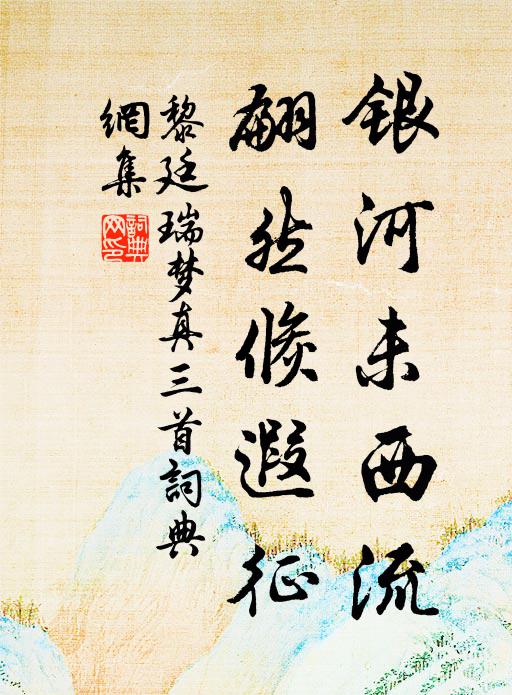 銀河未西流
翩然倏遐征
黎廷瑞梦真三首詞典
網集
詞典
网印